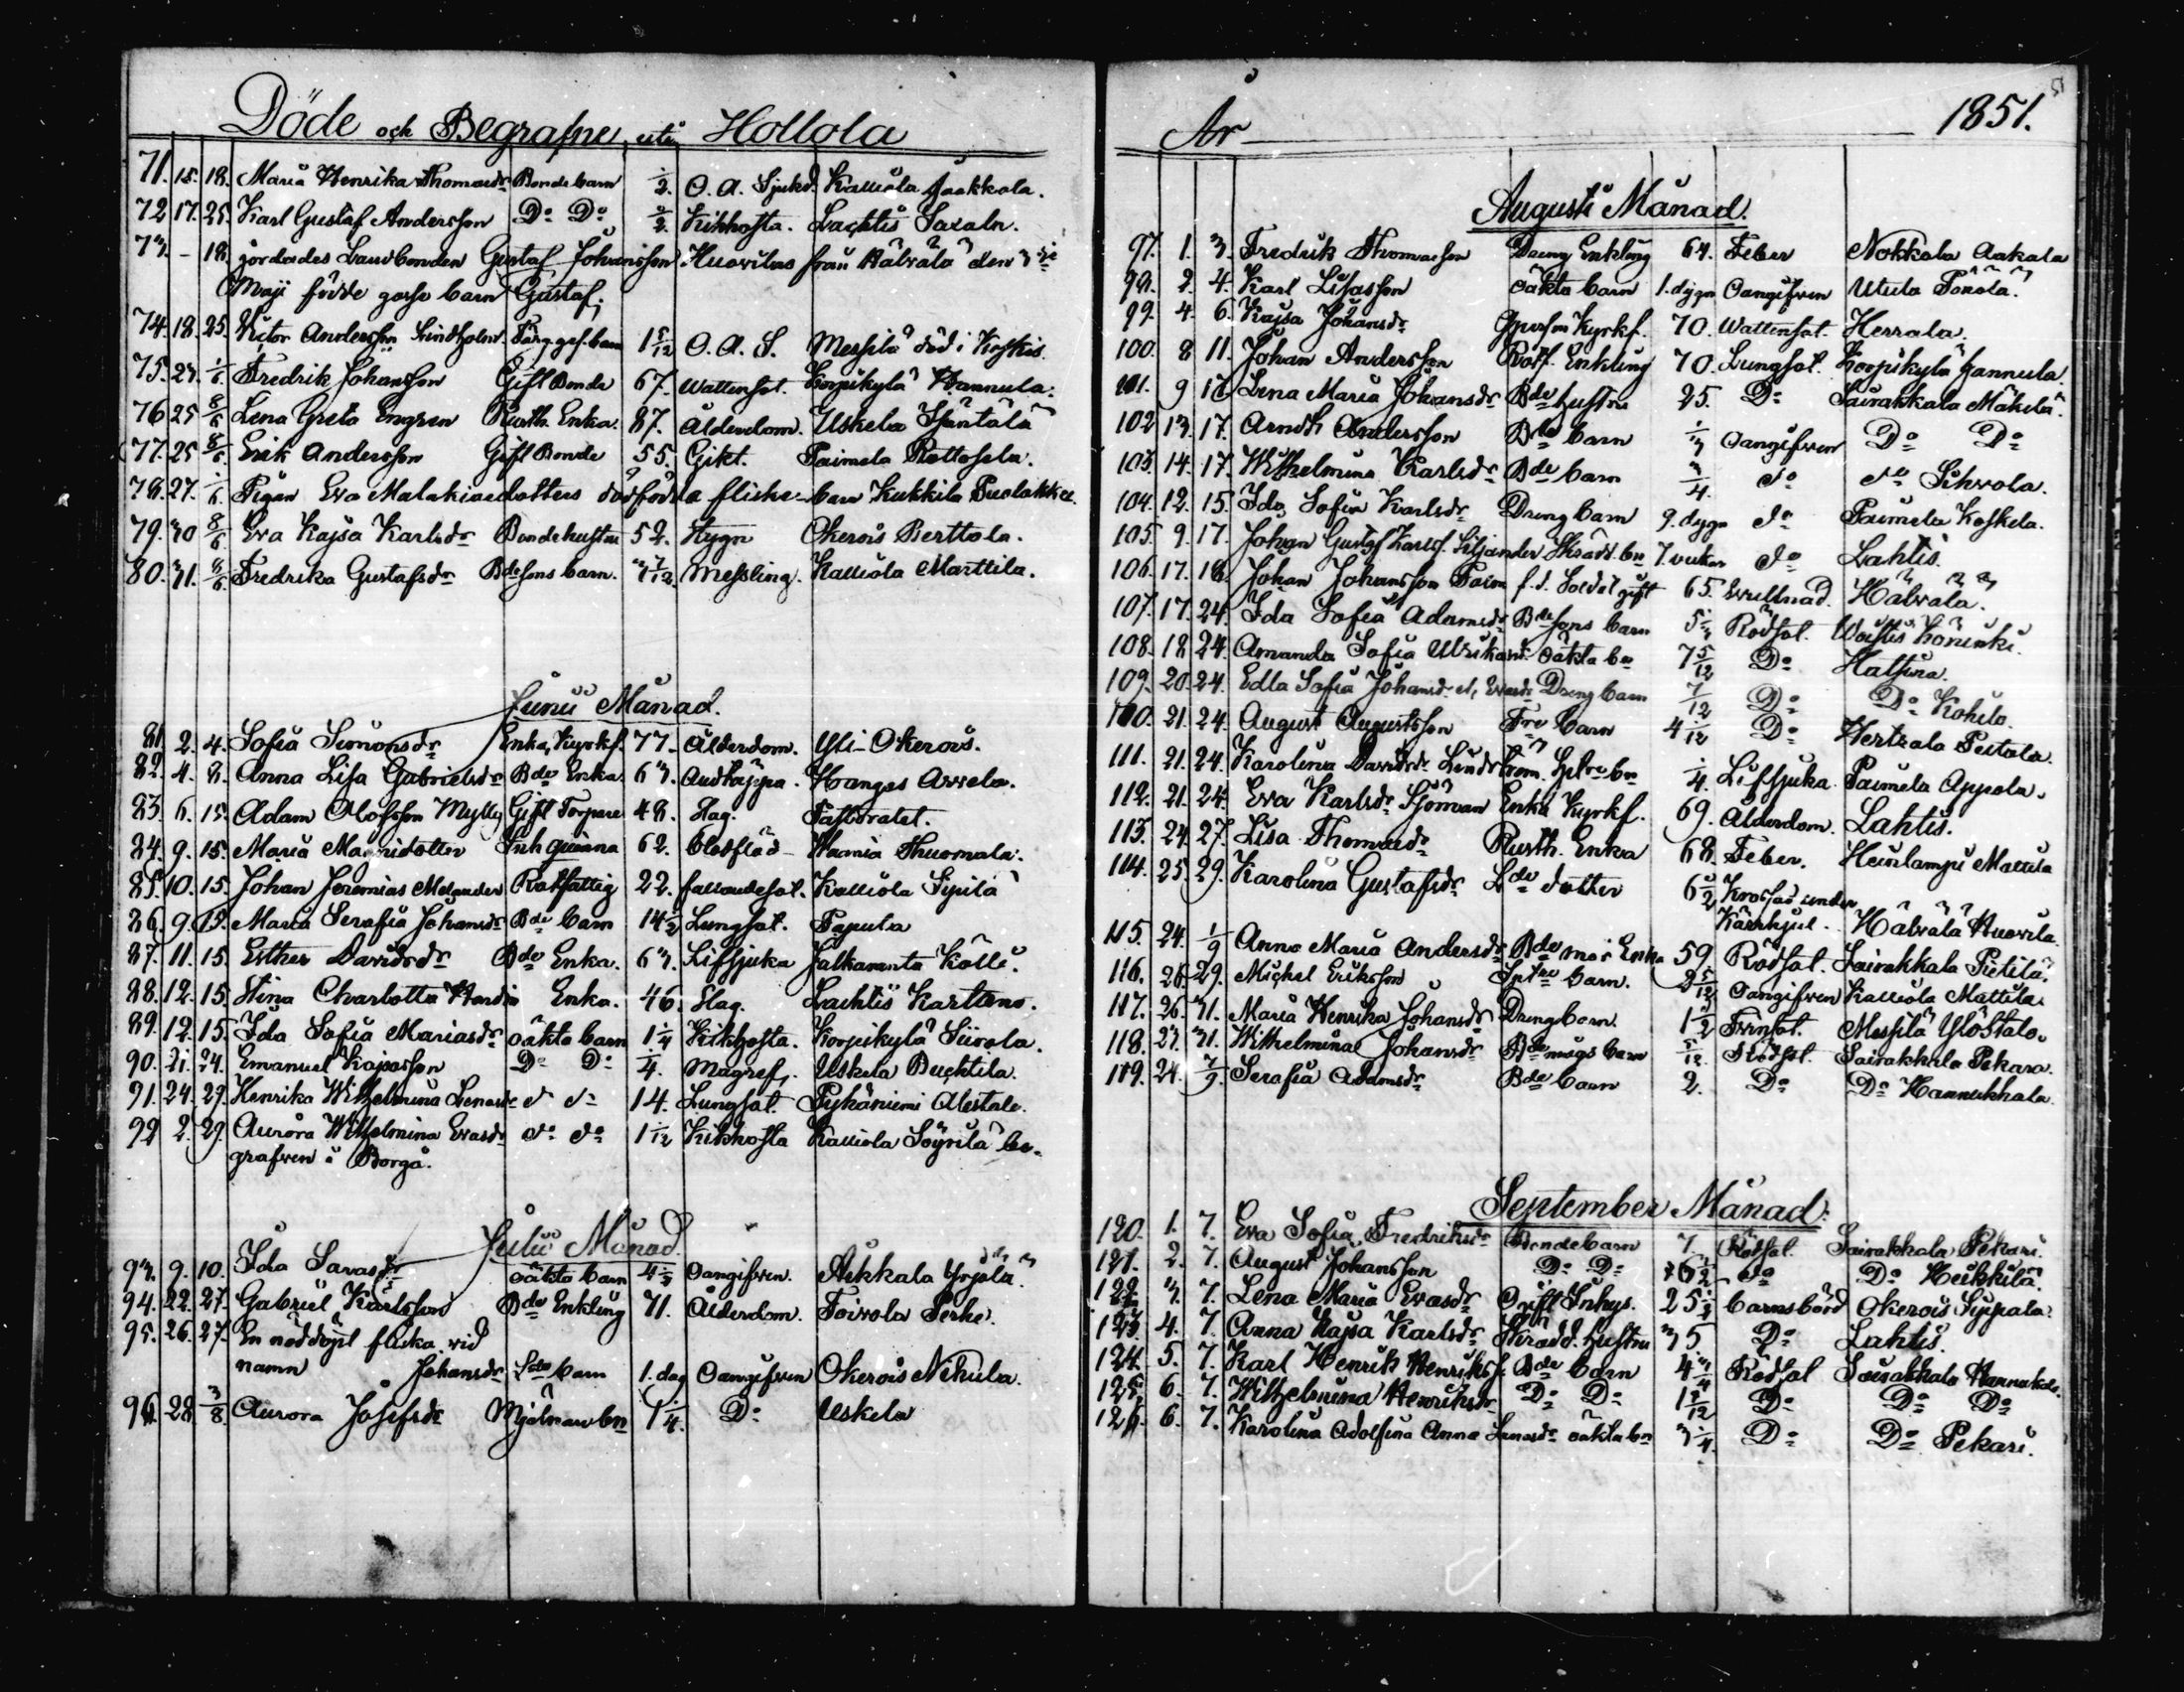 Döde och Begrafne uti Hollola
71. 15. 18. Maria Henrika Thomasdr Bondebarn 1/2. O. A. Sjukd. Kalliola Jaakkola.
72 17. 25. Karl Gustaf Andersson Do Do 2. Kikhosta. Lachtis Saxala.
73. - 18. jordades Landbonden Gustaf Johansson Huovilas från Hälvälä den
Maji födde gosse barn Gustaf;
74. 18. 25. Victor Andersson Lindholm Färg. ges. barn 1 5/12 O. A. S. Messilä död i Koskis.
75. 23. 1/6. Fredrik Johansson Gift Bonde 67. Wattensot. Korpikylä Hannula.
76 25 8/6 Lena Greta Engren Ruoth. Enka. 87. Ålderdom. Uskela Sjäntälä
77. 25 8/6. Erik Andersson Gift Bonde 55. Gikt. Paimela Rottosela.
78. 27. 1/6. Pigan Eva Malakiaedotters dödfödda flicke-barn Kukkila Puolakka
79. 30 8/6 Eva Kajsa Karlsdr Bondehustru 52. Stygn Okerois Perttola.
80. 31. 8/6. Fredrika Gustafsdr Bdesons barn. 3 7/12. Messling. Kalliola Marttila.
Junii Månad.
81. 2. 4. Sofia Simonsdr Enka, Kyrkf. 77. Ålderdom. Yli-Okerois.
82. 4. 8. Anna Lisa Gabrielsdr Bde Enka 63. Andtäppa. Hangas Arvela.
83. 6. 15. Adam Olofsson Mylly Gift Torpare 48. Slag. Pastoratet.
84. 9. 15. Maria Magnidotter Inh qvinna 62. Blodflöd Wamia Thuomala.
85. 10. 15. Johan Jeremias Melander Rotfattig 22. fallandesot. Kalliola Sipilä
86. 9. 15. Maria Serafia Johansdr Bde barn 14 1/2 Lungsot. Papula
87. 11. 15. Esther Davidsdr Bde Enka. 63. Lifsjuka Jalkaranta Kölli.
88. 12. 15. Stina Charlotta Enka. 46. Slag. Lachtis Karttano.
89. 12. 15. Ida Sofia Mariasdr oäkta barn 1 1/4 Kikhosta. Korpikylä Siirola.
90. 21. 24. Emanuel Kajasson Do Do 1/4. Magref. Uskela Buchtila.
91. 24. 29. Henrika Wilhelmina Lenasdr do do 14. Lungsot. Pyhäniemi Alestalo.
92 2. 29. Aurora Wilhelmina Evasdr do do 1 1/12 Kikhosta Kalliola Söyrilä be-
grafven i Borgå.
Julii Månad.
93. 9. 10. Ida Sarasdr oäkta barn 4 1/2 Oangifven. Aikkala Yrjölä.
94. 22. 27. Gabriel Karlsson Bde Enkling 71. Ålderdom. Toivola Perhe.
95. 26. 27. En nöddöpt flicka vid
namn Johansdr Lde barn 1. dag Oangifven Okerois Nikula.
96. 28 3/8. Aurora Josefsdr Mjölnare bn 1 1/4. Do Uskela
År 1851.
Augusti Månad.
97. 1. 3. Fredrik Thomasson Dreng Enkling 64. Feber Nokkola Aakala
98. 2. 4. Karl Lisasson oäkta barn 1. dygn Oangifven Utula Pönölä.
99. 4. 6. Kajsa Johansdr Kyrkf. 70. Wattensot. Herrala.
100. 8 11. Johan Andersson Rotf. Enkling 70. Lungsot. Korpikylä Hannula.
101. 9 17. Lena Maria Johansdr Bde hustru 25. Do Sairakkala Mäkelä.
102 13. 17. Arndt Andersson Bde barn 1/3 Oangifven Do Do
103. 14. 17. Wilhelmina Karlsdr Bde barn 3/4. do do Sihvola.
104. 12. 15. Ida Sofia Karlsdr Dreng barn 9. dygn do Paimela Koskela.
105. 9. 17. Johan Gustaf Karlss. Siljander Skrädd. bn 7. veckor do Lahtis.
106. 17. 18. Johan Johansson Parm f. d. Soldat gift 65. Hälvälä.
107. 17. 24. Ida Sofia Adamsdr Bdesons barn 5 Rödsot. Wohtis Könenki.
108. 18 24. Amanda Sofia Ulrikasdr oäkta bn 7 5/12 Do Hatsina.
109. 20. 24. Edla Sofia Johansdr el, Evasdr Dreng barn 7/12 Do Do Kohilo.
110. 21. 24. August Augustsson Tre barn 4 1/12 Do Hertsala Peitola.
111. 21. 24. Karolina Davidsdr Lindström Sptre bn 1/4. Lifsjuka. Paimela Appola.
112. 21. 24. Eva Karlsdr Sjöman Enka Kyrkf. 69. Ålderdom. Lahtis.
113. 24. 27. Lisa Thomasdr Ruoth. Enka 68. Feber. Heinlampi Mattila
114. 25. 29. Karolina Gustafsdr Lde dotter 6 1/2 Krossad under
Kärrhjul. Hälvälä Huovila.
115. 24. 1/9 Anna Maria Andersdr Bde mor Enka 59. Rödsot. Sairakkala Pietilä.
116. 26. 29. Michel Eriksson Sptre barn. 2 5/12 Oangifven Kalliola Mattila.
117. 26. 31. Maria Henrika Johansdr Drengbarn. 1 1/2 Tvinsot. Messilä Ylöstalo.
118. 27. 31. Wilhelmina Johansdr Bde mågs barn 5/12. Rödsot. Sairakkala Pekara.
119. 24. 7/9. Serafia Adamsdr Bde barn 2. Do Do Hannukkala.
September Månad.
120. 1. 7. Eva Sofia Fredriksdr Bondebarn 7. Rödsot. Sairakkala Pekari.
121. 2. 7. August Johansson Do Do 6 1/2 do Do Heikkilä.
122 3. 7. Lena Maria Evasdr Gift Inhys. 25 1/2 barnsbörd Okerois Sippala.
123. 4. 7. Anna Kajsa Karlsdr Skrädd. hustru 35 Do Lahtis.
124. 5. 7. Karl Henrik Henrikss. Bde barn 4 3/4 Rödsot Sairakkala Hannukala.
125. 6. 7. Wilhelmina Henriksdr Do Do 1 9/12 Do Do Do
126. 6. 7. Karolina Adolfina Anna Lenasdr oäkta bn 3 1/4. Do Do Pekari.